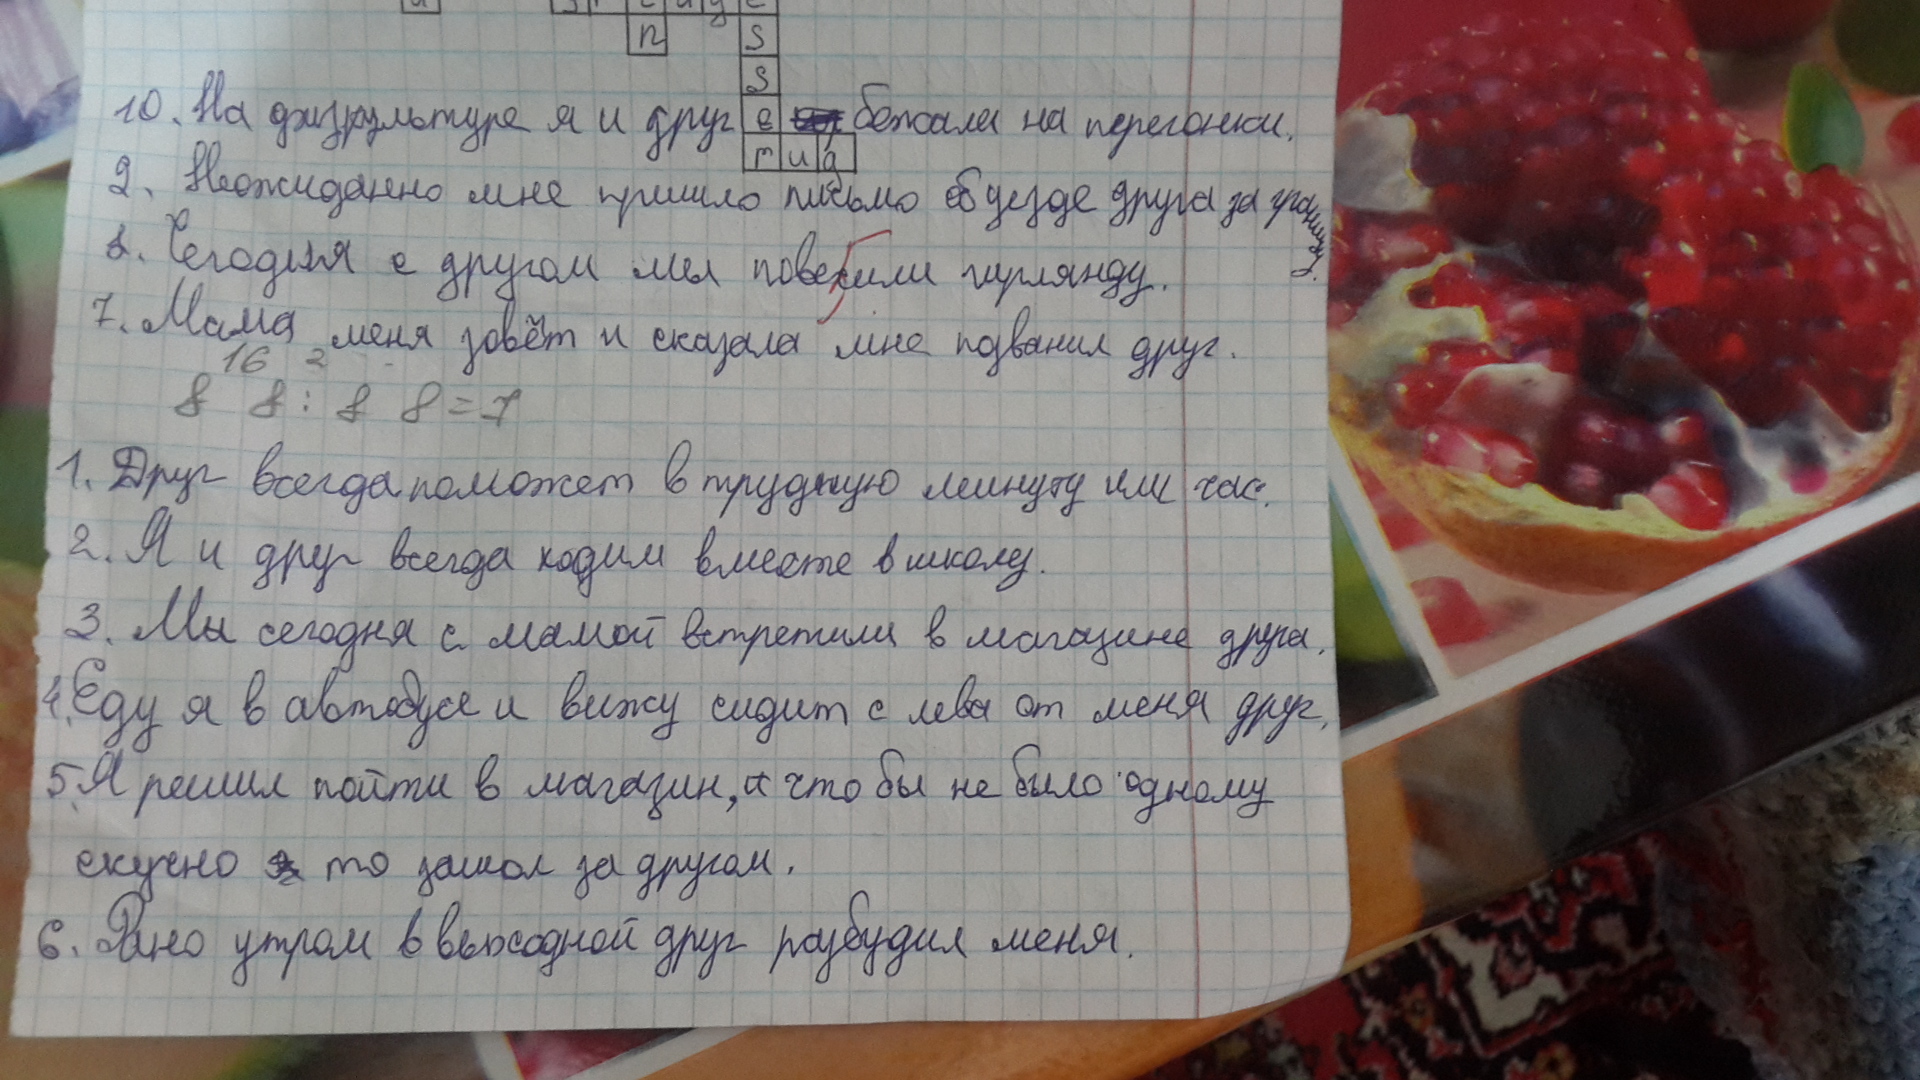 n s
s
10. На физкультуре я и друг e бежали на перегонки.
r u g
9. Неожиданно мне пришло письмо об уезде друга за границу.
8. Сегодня с другом мы повесили гирлянду.
7. Мама меня зовёт и сказала мне позванил друг.
16 2
8 8 : 8 8 = 7
1. Друг всегда поможет в трудную минуту или час.
2. Я и друг всегда ходим вместе в школу.
3. Мы сегодня с мамой встретили в магазине друга.
4. Еду я в автобусе и вижу сидит с лева от меня друг.
5. Я решил пойти в магазин, а что бы не было одному
скучно то зашол за другом.
6. Рано утром в выходной друг разбудил меня.